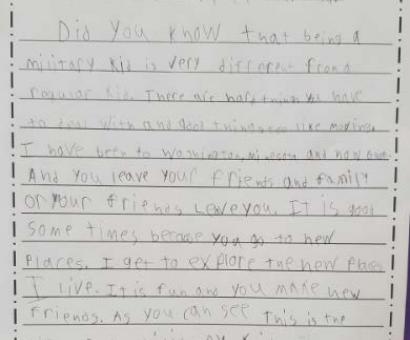 Did you know that being a
military kid is very different from a
regular kid. There are hard things you have
to deal with and good things like moving.
I have been to Washington, and now
And you leave your friends and family
or your friends leave you. It is good
some times because you go to new
places. I get to explore the new places
I live. It is fun and you make new
friends. As you can see This is the